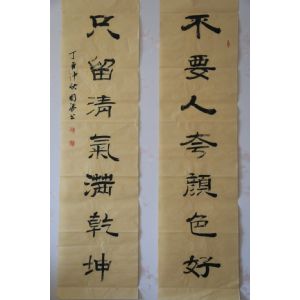 不要人夸顏色好
只留清氣滿乾坤
丁酉仲秋